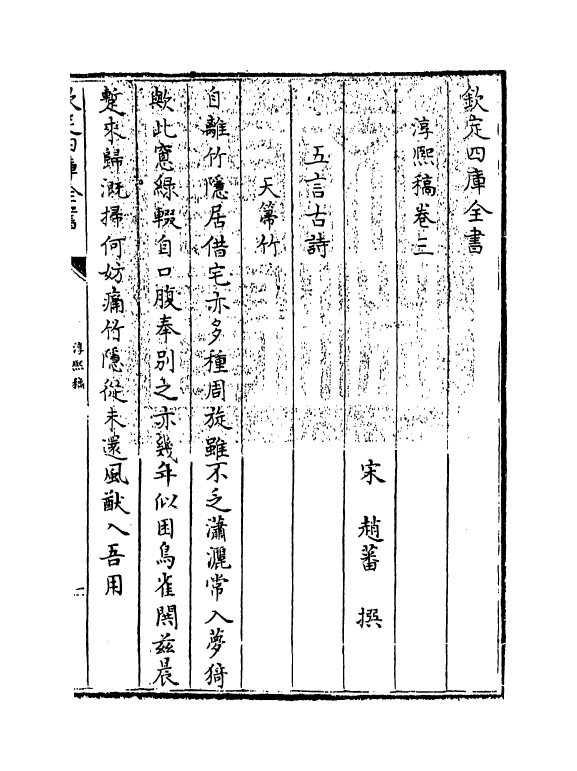 欽定四庫全書
淳熙稿卷三
宋 趙蕃 撰
五言古詩
天箒竹
自離竹隱居借宅亦多種周旋雖不乏瀟灑常入夢猗
歟此窻綠輟自口腹奉别之亦幾年似困鳥雀閧兹晨
蹔來歸溉掃何妨痛竹隱從未還風猷入吾用
欽定四庫全書
淳熙稿